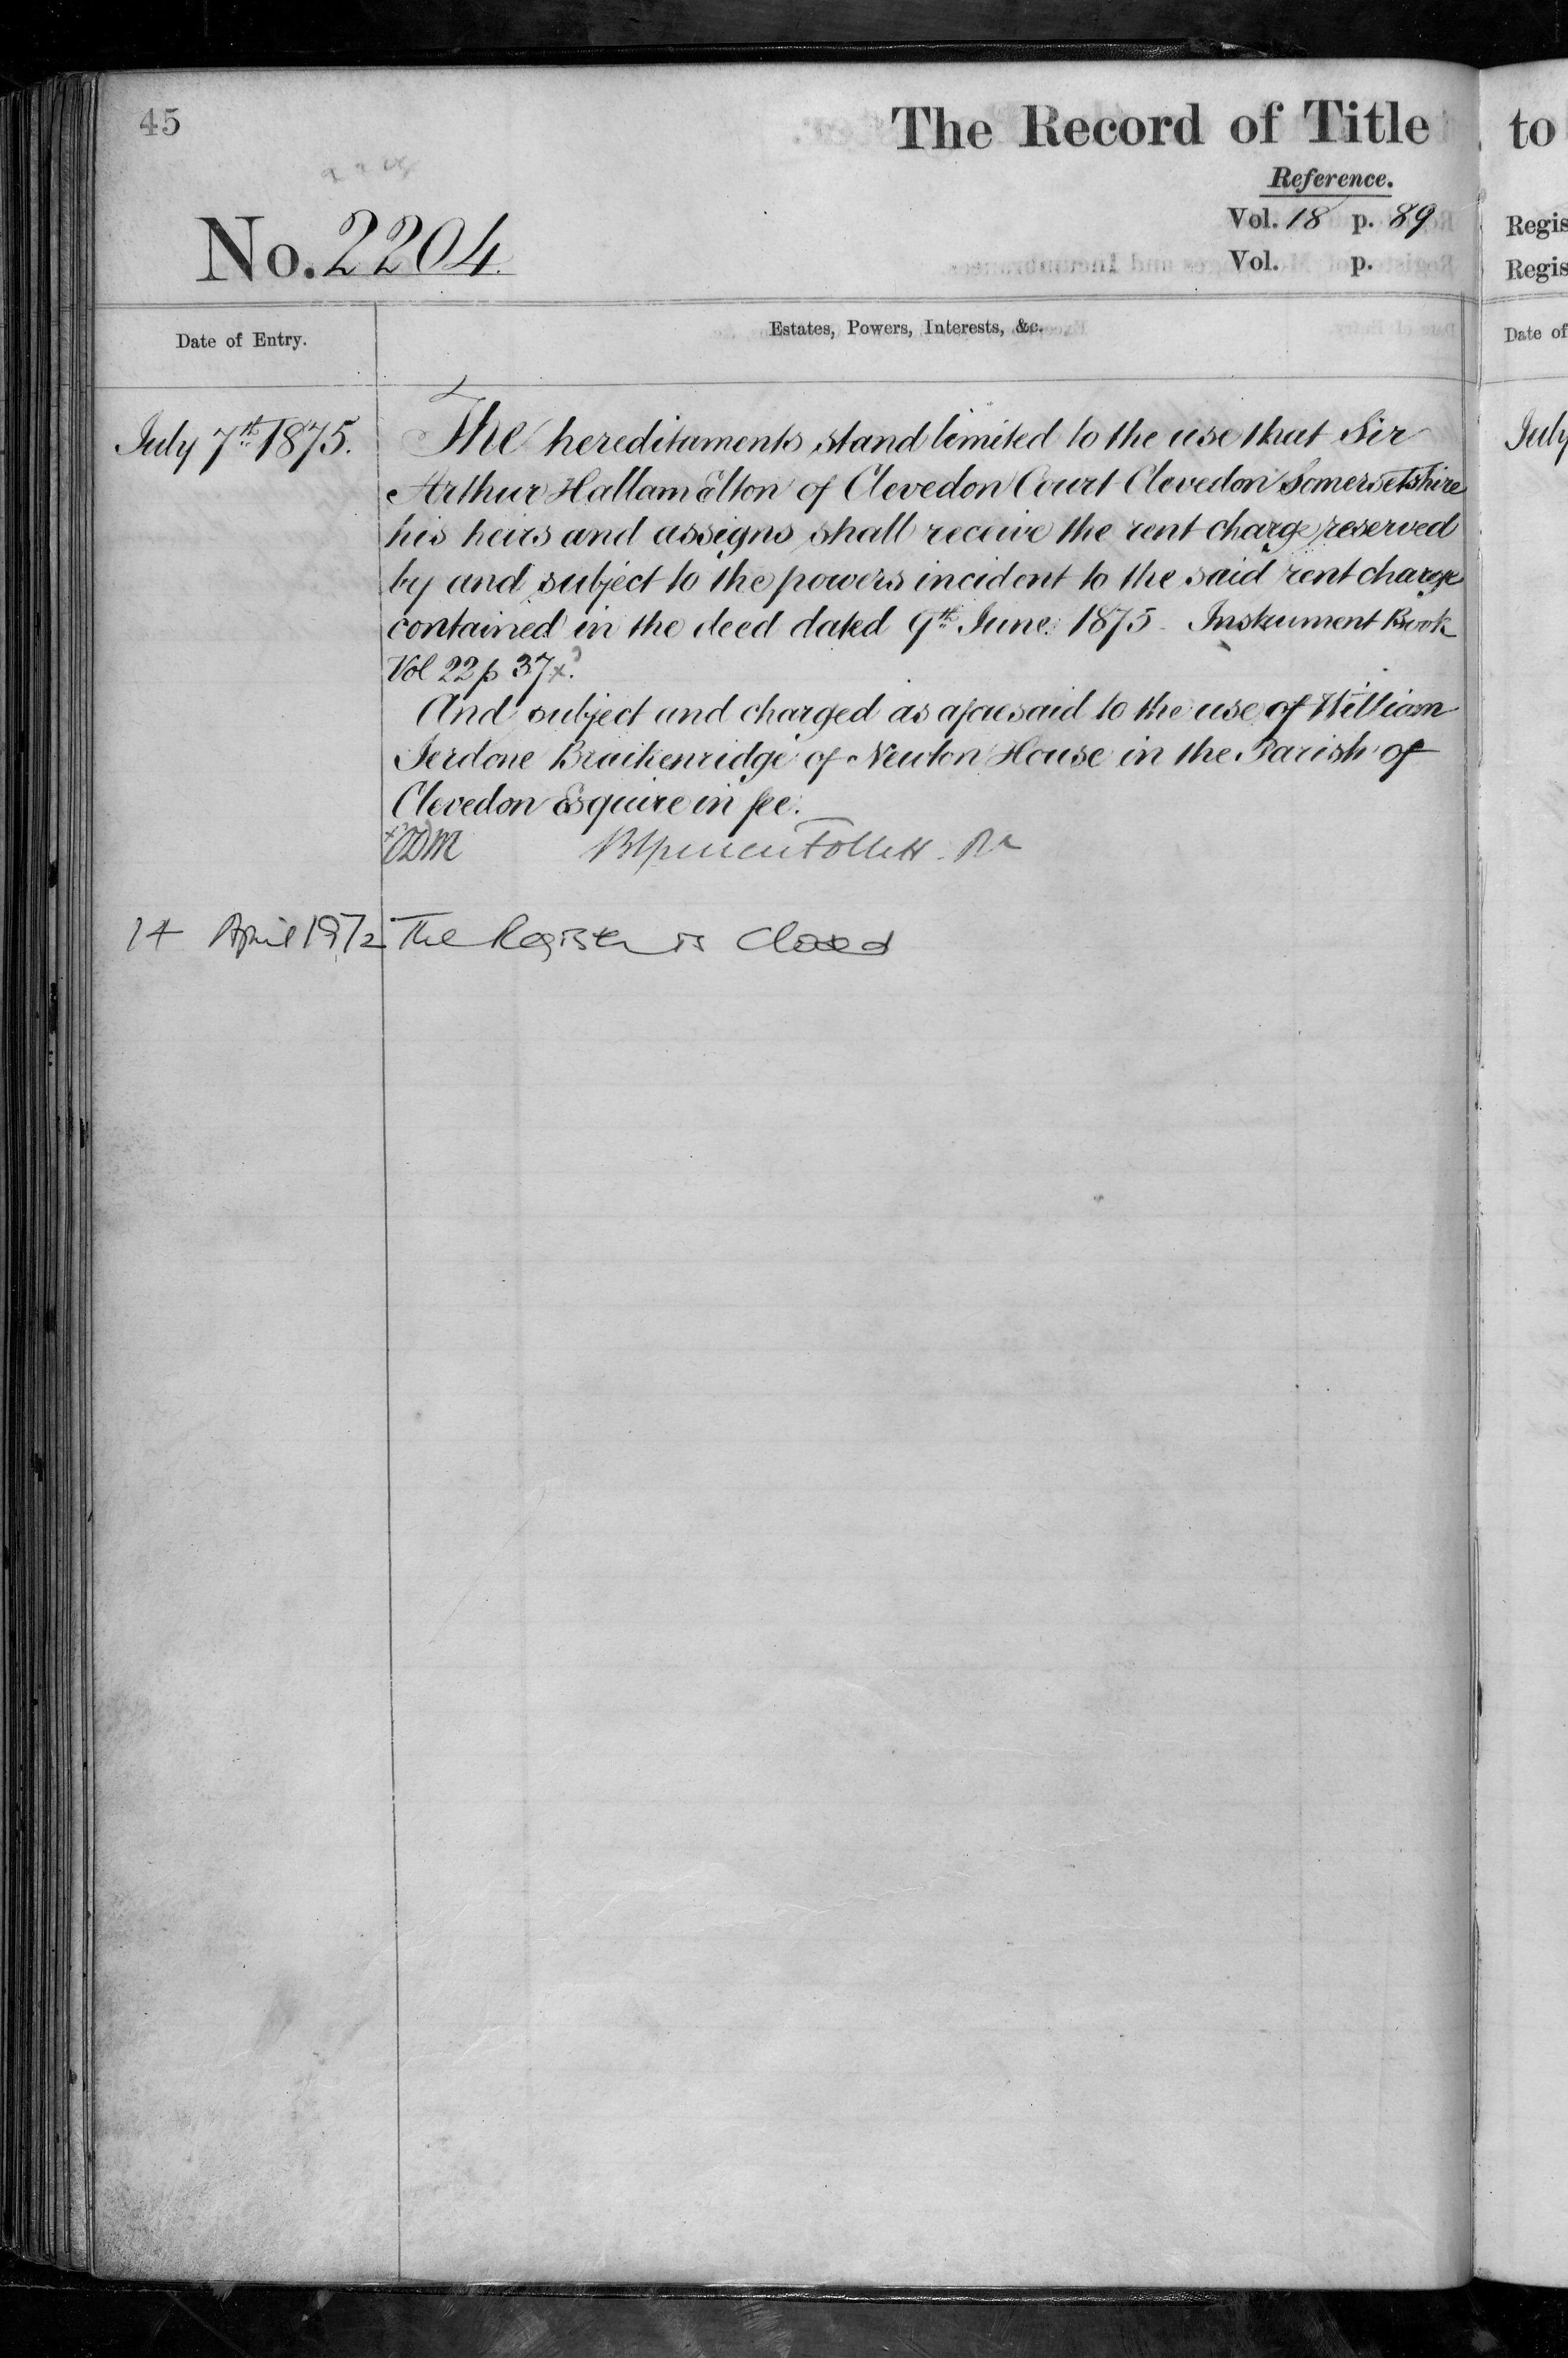 45
The Record of Title
to
Reference.
Vol. 18 p. 89
Regis
No. 2204.
Vol. p.
Regis
Date of Entry.
Estates, Powers, Interests, &c.
Date of
July 7th 1875.
The hereditaments stand limited to the use that Sir
July
Arthur Hallam Elton of Clevedon Court Clevedon Somersetshire
his heirs and assigns shall receive the rent charge reserved
by and subject to the powers incident to the said rent charge
contained in the deed dated 9th June. 1875 - Instrument Book
Vol 22 p 37x.
And subject and charged as aforesaid to the use of William
Jerdone Braikenridge of Newton House in the Parish of
Clevedon Esquire in fee.
Follett
14 April 1972 The Register is Closed